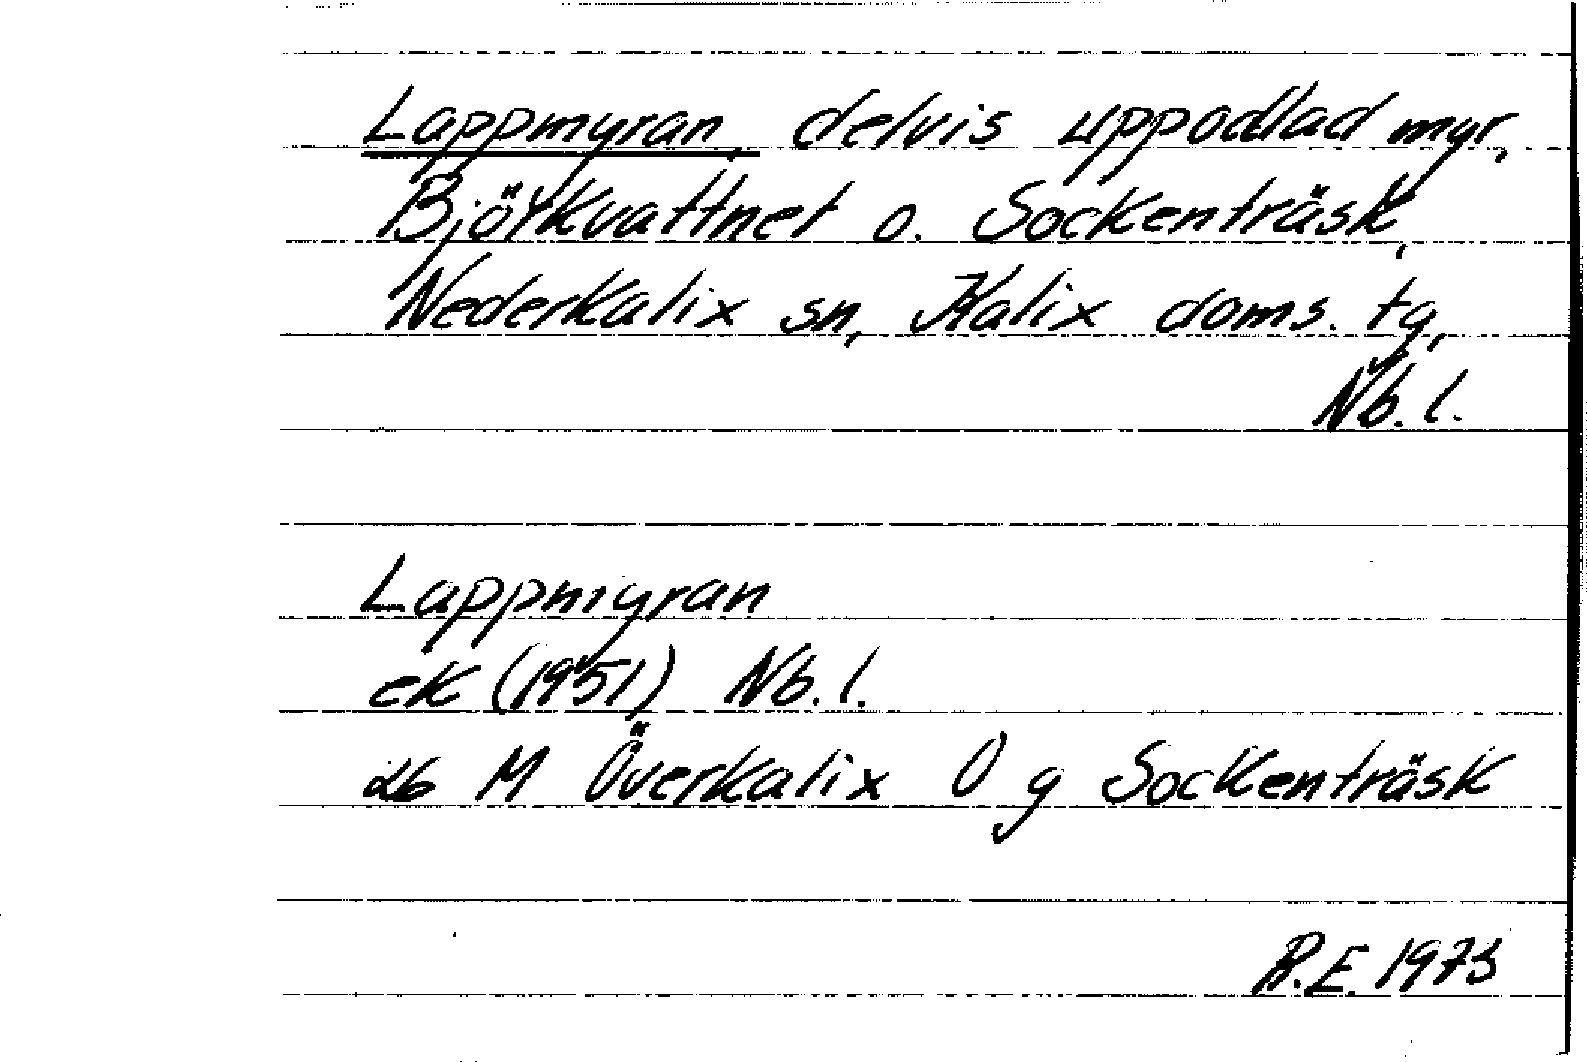 Lappmyran, delvis uppodlad myr,
Björkvattnet o. Sockenträsk,
Nederkalix sn, Kalix doms. tg,
Nb. l.
Lappmyran
ek (1951) Nb. l.
26 M Överkalix Ö g Sockenträsk
R.E. 1973